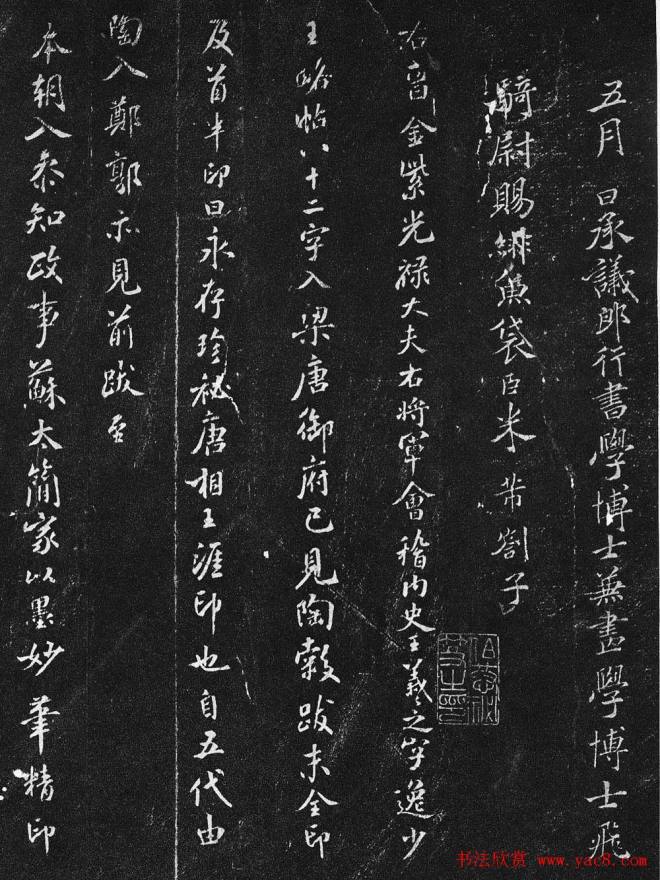 五月 日承議郎行書學博士兼畫學博士飛
騎尉賜緋魚袋臣米芾劄子
右晉金紫光祿大夫右將軍會稽內史王羲之字逸少
王略帖八十二字入梁唐御府已見陶穀跋末全印
及首半印曰永存珍祕唐相王涯印也自五代由
陶入鄭郭亦見前跋至
本朝入叅知政事蘇太簡家以墨妙筆精印
书法欣赏 www.yac8.com